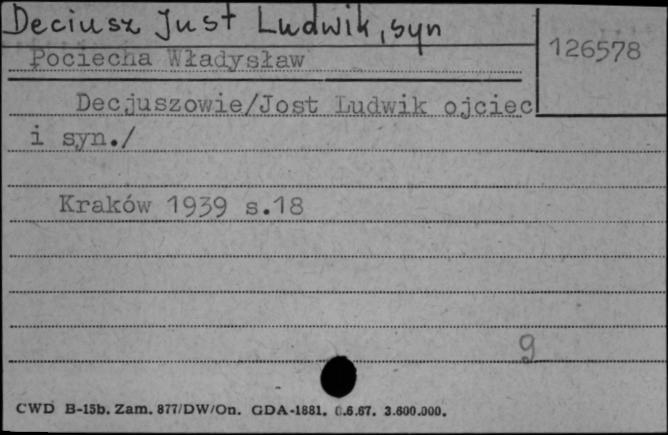 Deciusz Just Ludwik, syn
126578
Pociecha Władysław
Decjuszowie/Jost Ludwik ojciec
i syn./
Kraków 1939 s.18
g
CWD B-15b. Zam. 877/DW/On. GDA-1881. 6.6.67. 3.600.000.